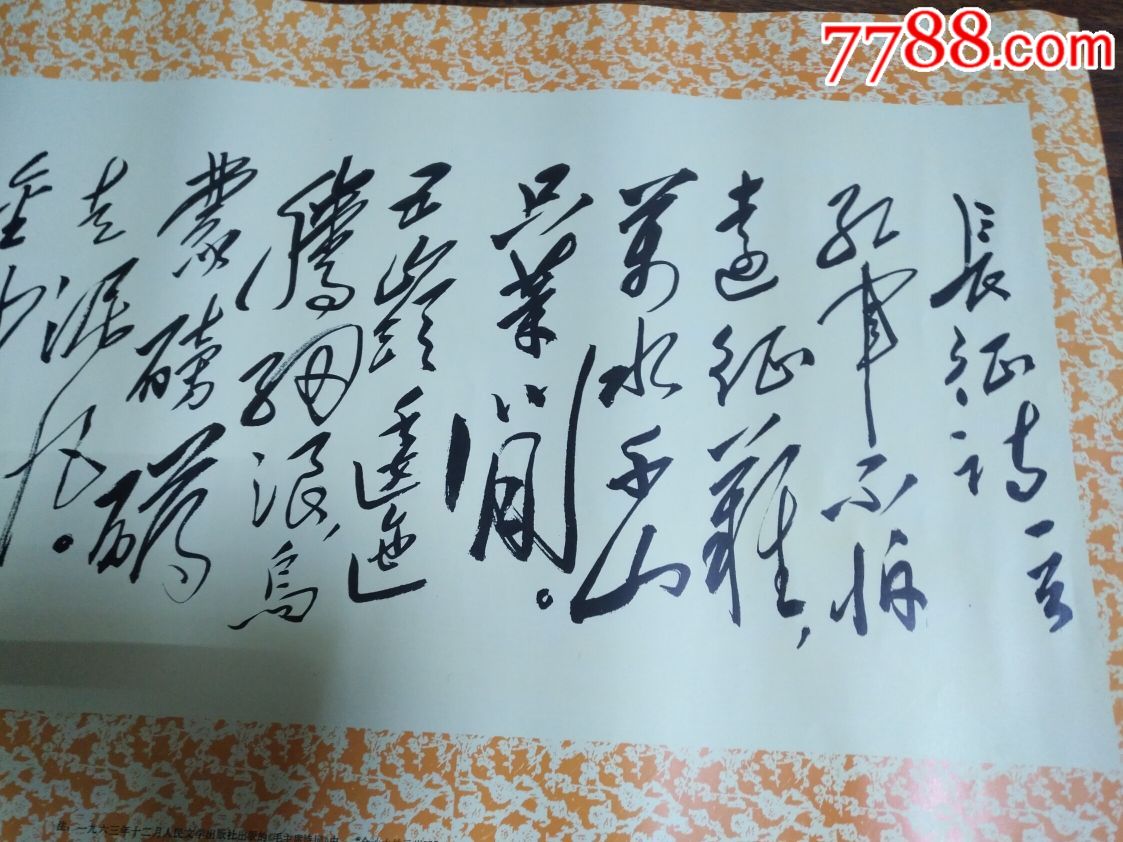 長征詩一首
紅軍不怕
遠征難，
萬水千山
只等閒。
五嶺逶迤
騰細浪，烏
蒙磅礴
走泥丸。
金沙
7788.com
注：一九六三年十二月人民文学出版社出版的《毛主席诗词》中，